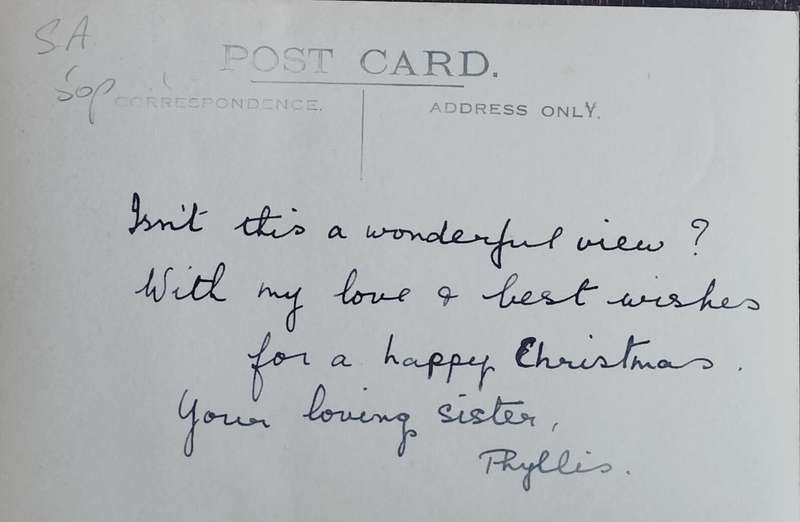 SA
50p
POST CARD.
CORRESPONDENCE.
ADDRESS ONLY.
Isn't this a wonderful view?
With my love & best wishes
for a happy Christmas.
Your loving sister,
Phyllis.